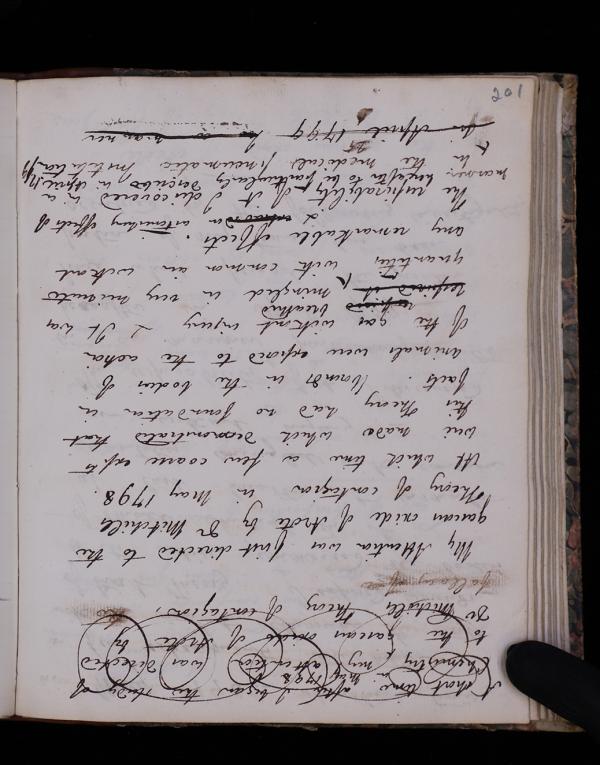 201
A short time after I began the study of
Chemistry in May 1798
my attention was directed
to the gaseous oxide of Azote by
Dr Mitchills Theory of contagion,
fallacy of
My Attention was first directed to the
gaseous oxide of Azote by Dr Mitchills
Theory of contagion in May 1798.
At which time a few coarse expts
were made which demonstrated that
this Theory had no foundation in
facts. Wounds in the bodies of
animals were exposed to the action
of the gas without injury & It was
respired
breathed
respired it mingled in very minute
quantities with common air without
any remarkable effects.
& astonishing effects of
The respirability of it I discovered in a
manner hereafter to be particularly described in April 1799
in the medical pneumatic Institution
In April 1799 in a manner